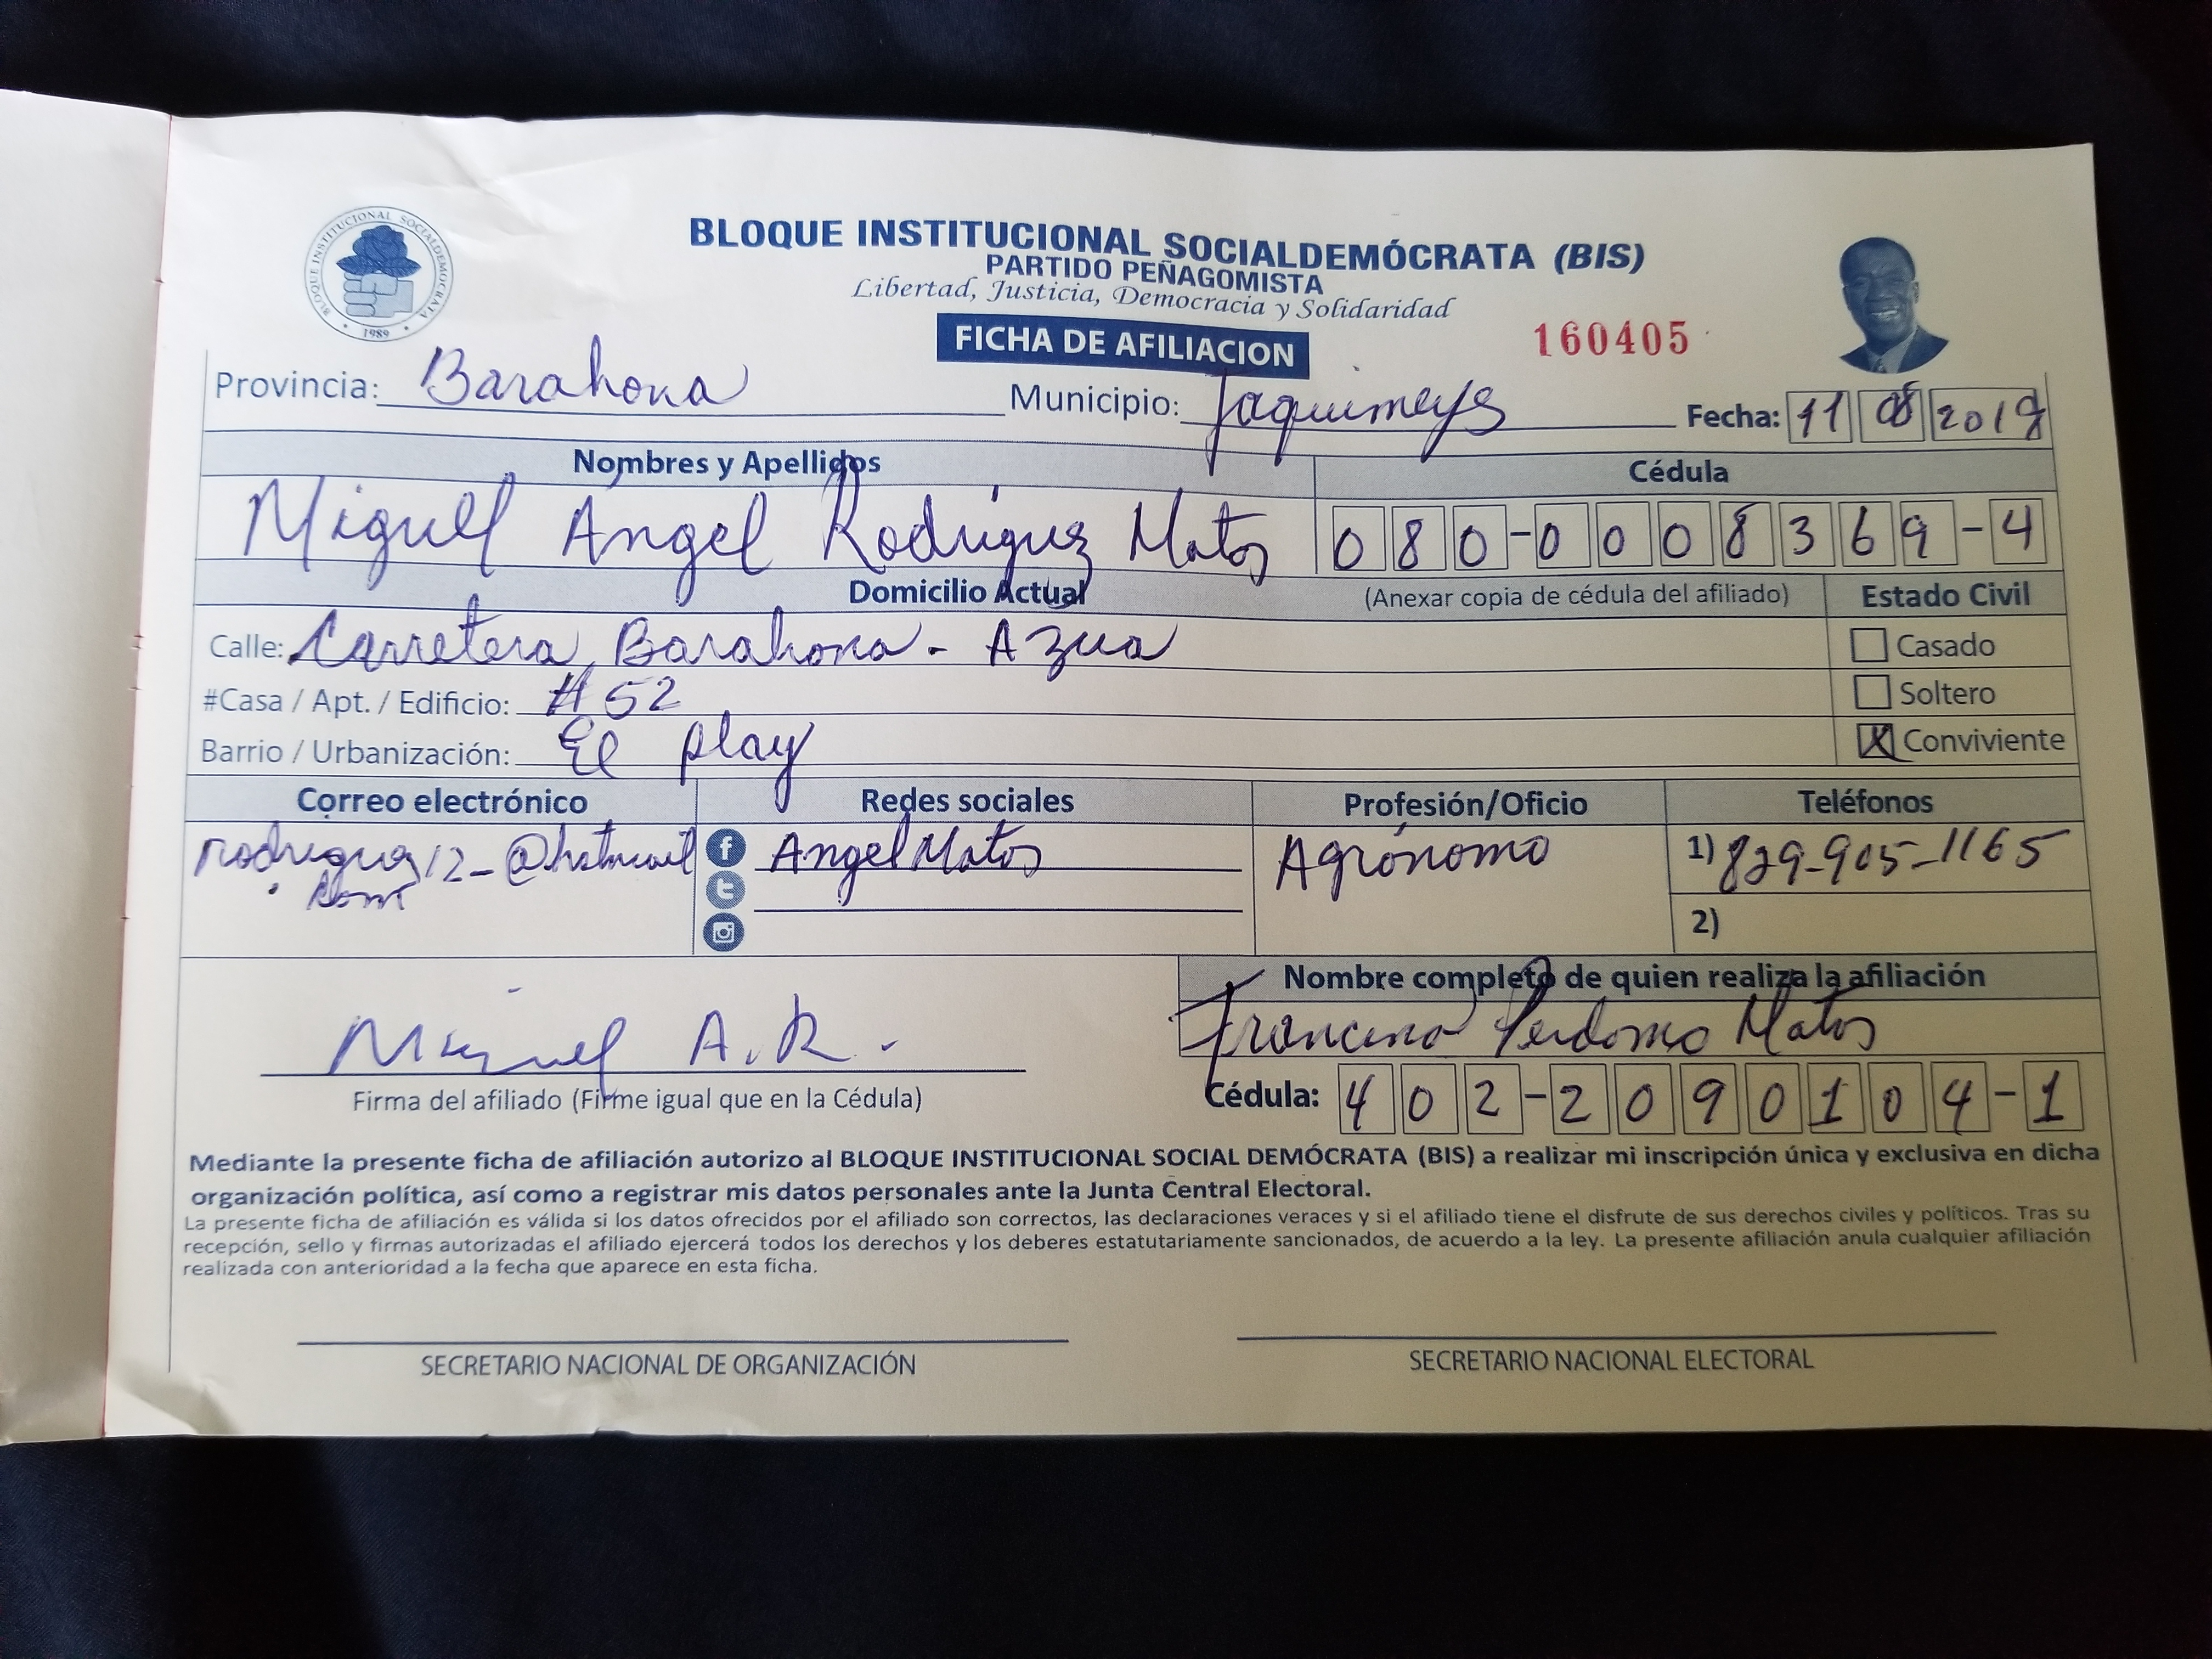 BLOQUE INSTITUCIONAL SOCIALDEMOCRATA
1989
BLOQUE INSTITUCIONAL SOCIALDEMÓCRATA (BIS)
PARTIDO PEÑAGOMISTA
Libertad, Justicia, Democracia y Solidaridad
FICHA DE AFILIACION
160405
Provincia: Barahona Municipio: Jaquimeys Fecha: 11 08 2019
Nombres y Apellidos Cédula
Miguel Angel Rodriguez Matos 080-0008369-4
Domicilio Actual (Anexar copia de cédula del afiliado) Estado Civil
Calle: Carretera Barahona - Azua Casado
#Casa / Apt. / Edificio: #52 Soltero
Barrio / Urbanización: El play X Conviviente
Correo electrónico Redes sociales Profesión/Oficio Teléfonos
rodriguez12_@hotmail Angel Matos Agrónomo 1) 829-905-1165
.com
2)
Nombre completo de quien realiza la afiliación
Miguel A. R. Perdomo Matos
Firma del afiliado (Firme igual que en la Cédula) Cédula: 402-2090104-1
Mediante la presente ficha de afiliación autorizo al BLOQUE INSTITUCIONAL SOCIAL DEMÓCRATA (BIS) a realizar mi inscripción única y exclusiva en dicha
organización política, así como a registrar mis datos personales ante la Junta Central Electoral.
La presente ficha de afiliación es válida si los datos ofrecidos por el afiliado son correctos, las declaraciones veraces y si el afiliado tiene el disfrute de sus derechos civiles y políticos. Tras su
recepción, sello y firmas autorizadas el afiliado ejercerá todos los derechos y los deberes estatutariamente sancionados, de acuerdo a la ley. La presente afiliación anula cualquier afiliación
realizada con anterioridad a la fecha que aparece en esta ficha.
SECRETARIO NACIONAL DE ORGANIZACIÓN SECRETARIO NACIONAL ELECTORAL